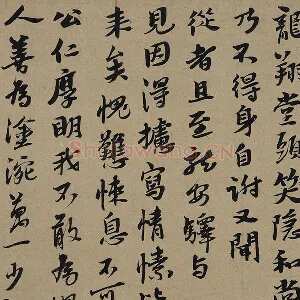 龍翔堂頭笑隱和尚
乃不得身自詶又聞
從者且至龍安驛与
見因得攄寫情愫
来矣愧難悚息不可
公仁厚明我不敢為
人善為塗涴萬一少